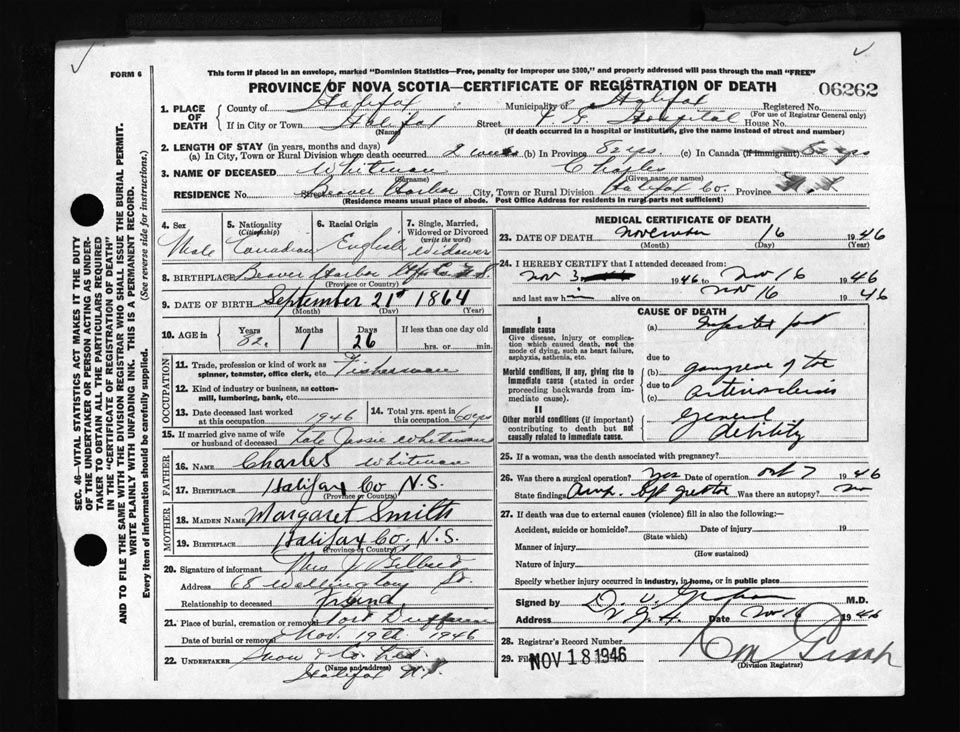 FORM 6
This form if placed in an envelope, marked "Dominion Statistics—Free, penalty for improper use $300," and properly addressed will pass through the mail "FREE"
PROVINCE OF NOVA SCOTIA—CERTIFICATE OF REGISTRATION OF DEATH
06262
1. PLACE OF DEATH
County of Halifax Municipality Halifax Registered No.
(For use of Registrar General only)
If in City or Town Halifax Street V G Hospital House No.
(Name) (If death occurred in a hospital or institution, give the name instead of street and number)
2. LENGTH OF STAY (in years, months and days)
(a) In City, Town or Rural Division where death occurred 2 (b) In Province 82 yrs. (c) In Canada (if immigrant)
3. NAME OF DECEASED Whitman Charles
(Surname) (Given name or names)
RESIDENCE No. Street Beaver Harbor City, Town or Rural Division Halifax Co. Province N.S.
(Residence means usual place of abode. Post Office Address for residents in rural parts not sufficient)
4. Sex Male
5. Nationality (Citizenship) Canadian
6. Racial Origin English
7. Single, Married, Widowed or Divorced (write the word) Widower
8. BIRTHPLACE Beaver Harbor Hfx Co N.S.
(Province or Country)
9. DATE OF BIRTH September 21st 1864
(Month) (Day) (Year)
10. AGE in Years 82 Months 1 Days 26 If less than one day old hrs. or min.
OCCUPATION
11. Trade, profession or kind of work as spinner, teamster, office clerk, etc. Fisherman
12. Kind of industry or business, as cotton-mill, lumbering, bank, etc.
13. Date deceased last worked at this occupation 1946
14. Total yrs. spent in this occupation 60 yrs
15. If married give name of wife or husband of deceased Late Jessie Whitman
FATHER
16. NAME Charles Whitman
17. BIRTHPLACE Halifax Co N.S.
(Province or Country)
MOTHER
18. MAIDEN NAME Margaret Smith
19. BIRTHPLACE Halifax Co. N.S.
(Province or Country)
20. Signature of informant Mrs J
Address 68 Wellington St.
Relationship to deceased Friend
21. Place of burial, cremation or removal Port Dufferin
Date of burial or removal Nov. 19th 1946
22. UNDERTAKER Snow & Co. Ltd.
(Name and address)
Halifax N.S.
MEDICAL CERTIFICATE OF DEATH
23. DATE OF DEATH November 16 1946
(Month) (Day) (Year)
24. I HEREBY CERTIFY that I attended deceased from:
Nov 3 1946 to Nov 16 1946
and last saw him alive on Nov 16 1946
CAUSE OF DEATH
I
Immediate cause
Give disease, injury or complication which caused death, not the mode of dying, such as heart failure, asphyxia, asthenia, etc.
(a) Infected foot
due to
Morbid conditions, if any, giving rise to immediate cause (stated in order proceeding backwards from immediate cause).
(b) gangrene of toe
due to
(c) arteriosclerosis
II
Other morbid conditions (if important) contributing to death but not causally related to immediate cause.
General debility
25. If a woman, was the death associated with pregnancy?
26. Was there a surgical operation? Yes Date of operation Oct 7 1946
State findings Was there an autopsy? no
27. If death was due to external causes (violence) fill in also the following:—
Accident, suicide or homicide? Date of injury 19
(State which)
Manner of injury
(How sustained)
Nature of injury
Specify whether injury occurred in industry, in home, or in public place
Signed by D. V. Graham M.D.
Address V.G.H. Date Nov 16 1946
28. Registrar's Record Number
29. Filed NOV 18 1946
(Division Registrar)
SEC. 46—VITAL STATISTICS ACT MAKES IT THE DUTY
OF THE UNDERTAKER OR PERSON ACTING AS UNDER-
TAKER TO OBTAIN ALL THE PARTICULARS REQUIRED
IN THE "CERTIFICATE OF REGISTRATION OF DEATH"
AND TO FILE THE SAME WITH THE DIVISION REGISTRAR WHO SHALL ISSUE THE BURIAL PERMIT.
WRITE PLAINLY WITH UNFADING INK. THIS IS A PERMANENT RECORD.
Every item of information should be carefully supplied. (See reverse side for instructions.)